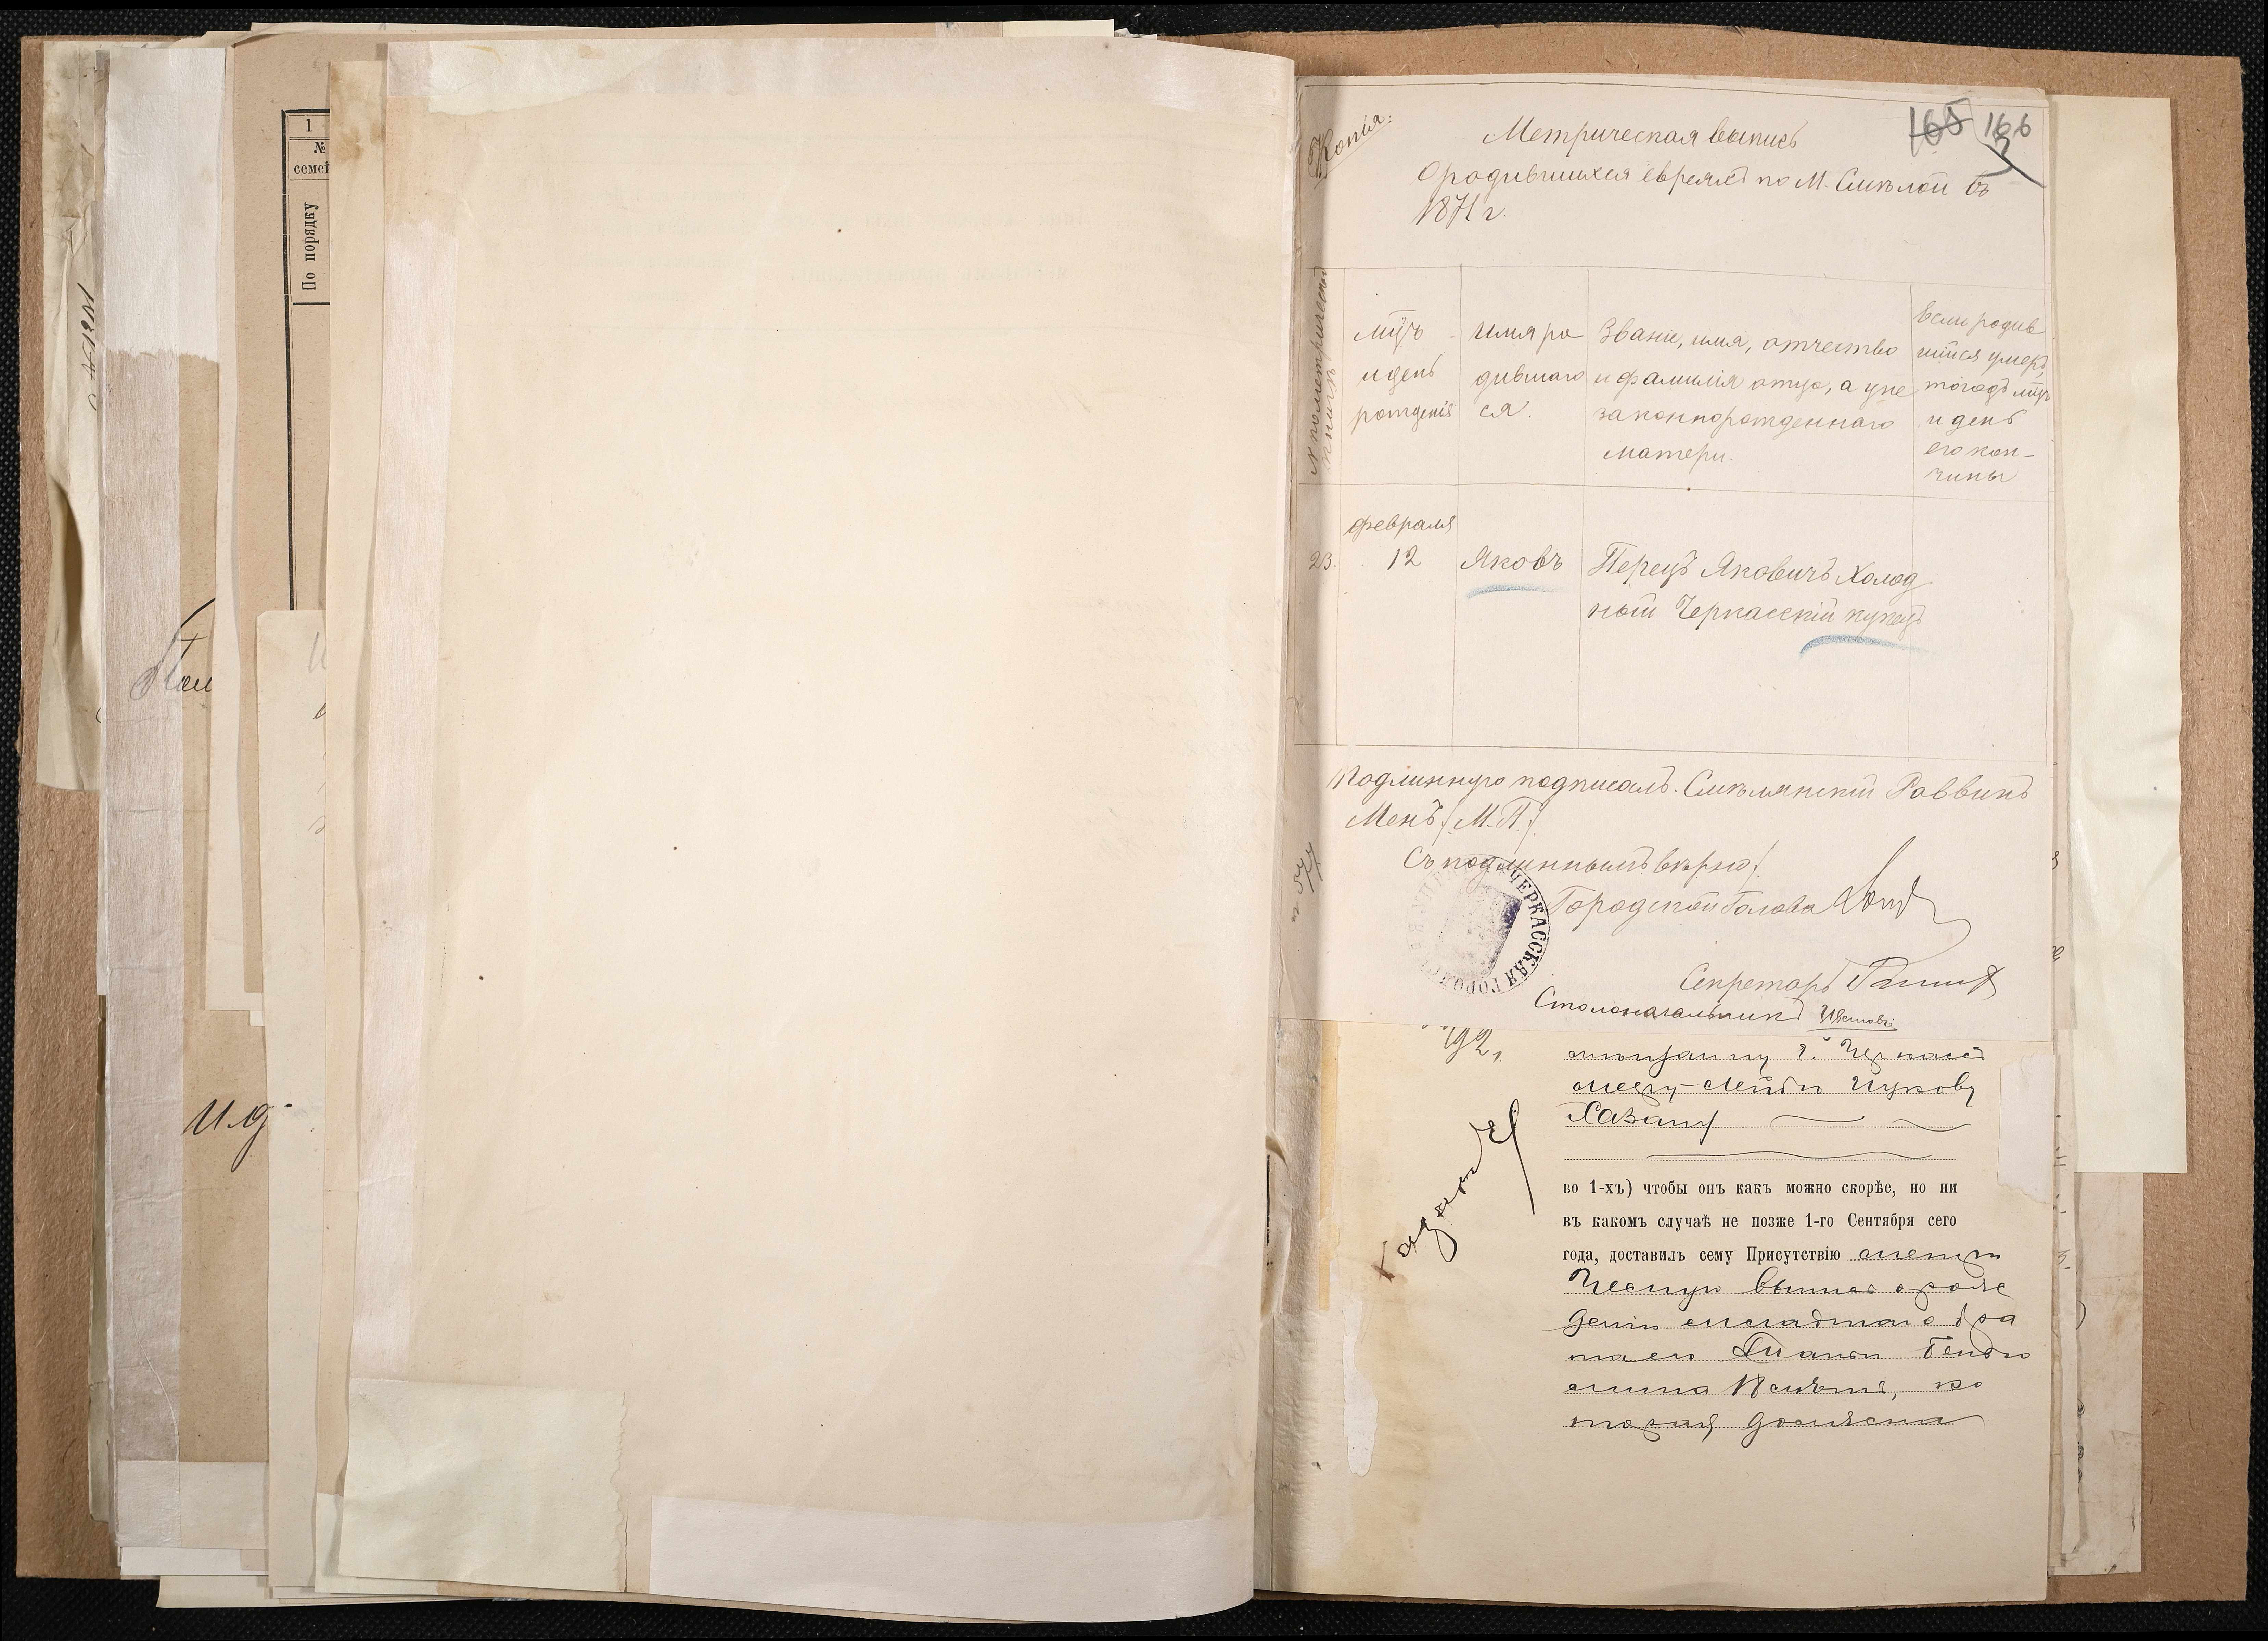 1
№
семей
По порядку
И.д.
Копія.
165 166
Метрическая выпись
О родившихся евреяхъ по М. Смѣлой въ
1871 г.
№ по метрической
книгѣ
мѣць
и день
рожденія
Имя ро
дившаго
ся.
Званіе, имя, отчество
и фамилія отца, а у не
законнорожденнаго
матери.
Если родив
шійся умеръ,
то годъ мѣць
и день
его кон-
чины
февраля
23.
12
Яковъ
Перецъ Яковичъ Холод
ный Черкасскій купецъ
Подлинную подписалъ: Смѣлянскій Раввинъ
Менъ /М.П./
Съ подлиннымъ вѣрно:
Городской Голова
ЧЕРКАССКАЯ ГОРОДСКАЯ
Секретарь
Столоначальникъ
192,
мѣщанину г. Черкасъ
Ицкову
Хазину
во 1-хъ) чтобы онъ какъ можно скорѣе, но ни
въ какомъ случаѣ не позже 1-го Сентября сего
года, доставилъ сему Присутствію метри
ческую выпись о рож
деніи младшаго бра
та его